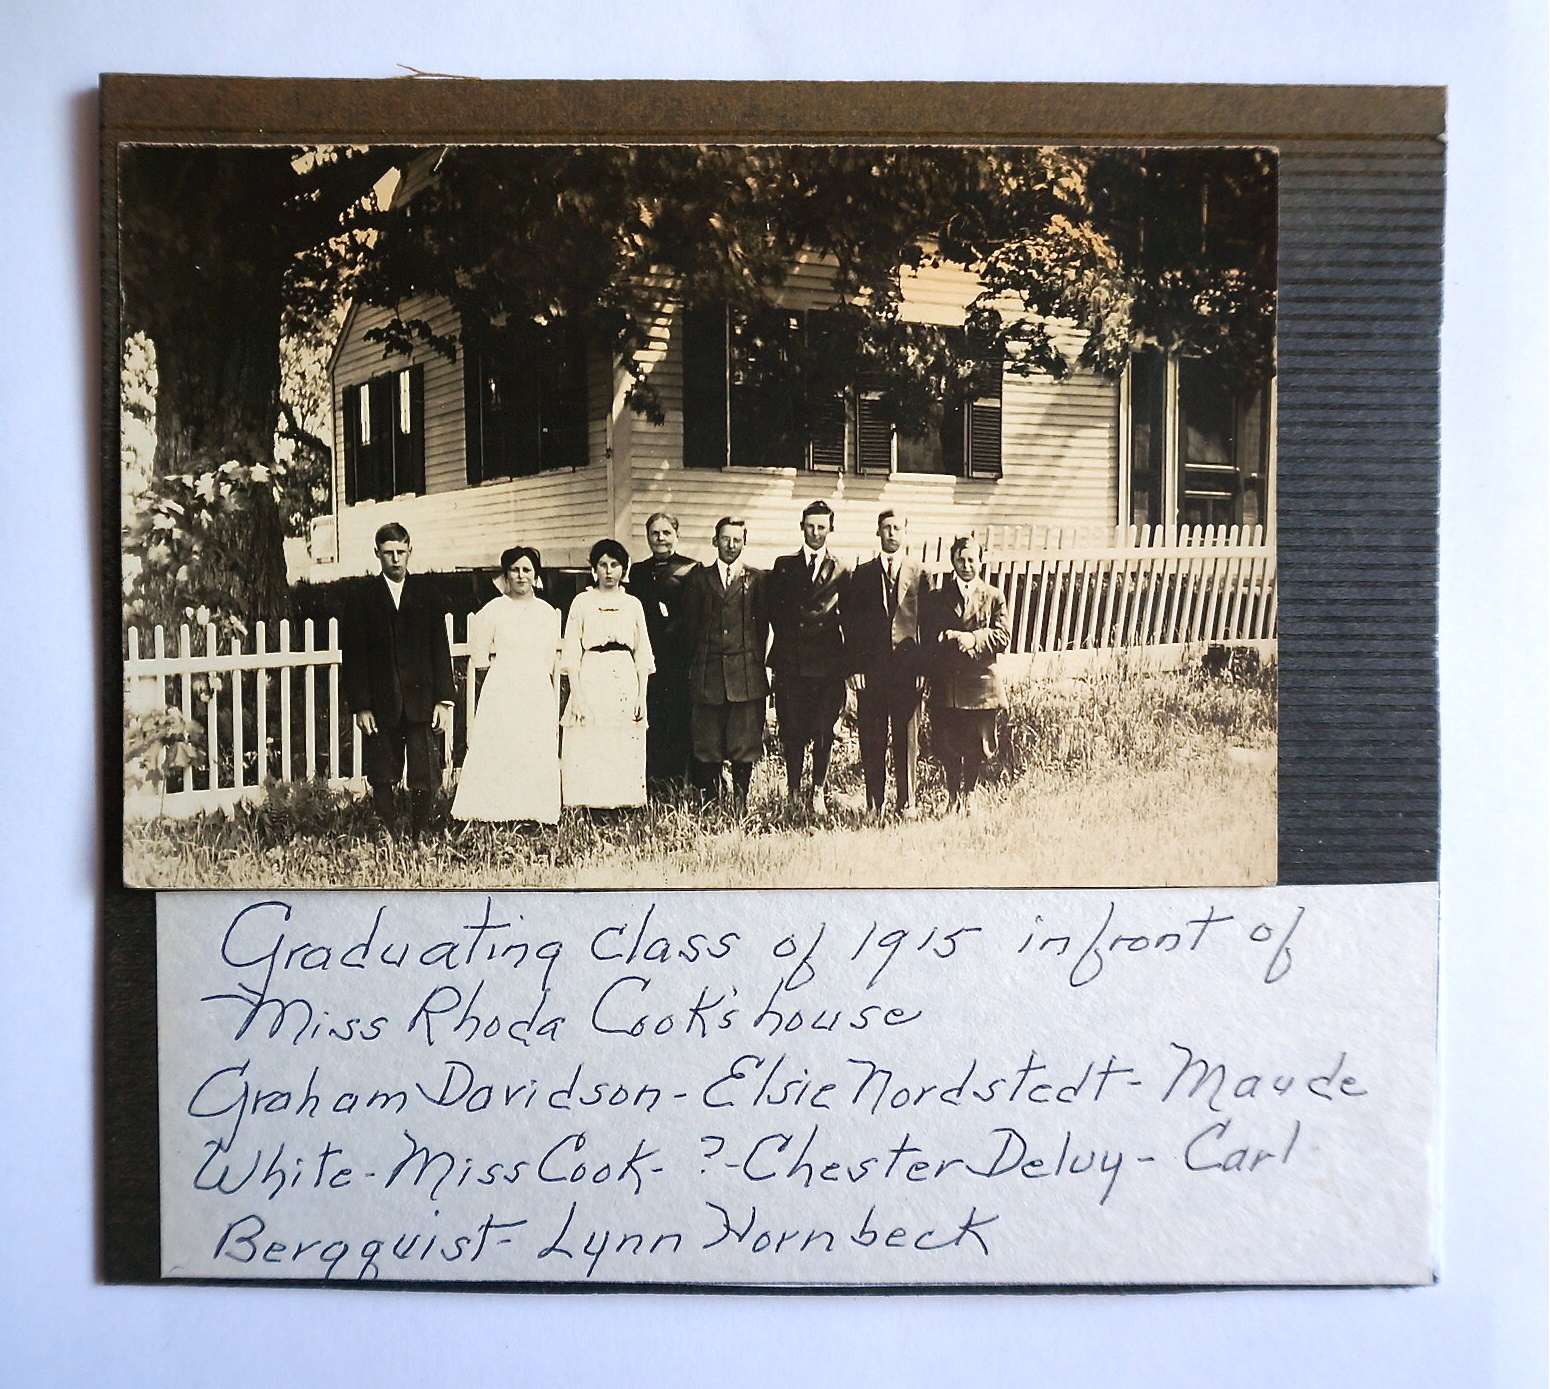 Graduating class of 1915 in front of
Miss Rhoda Cook's house
Graham Davidson - Elsie Nordstedt - Maude
White - Miss Cook - ? - Chester Deluy - Carl
Bergquist - Lynn Hornbeck